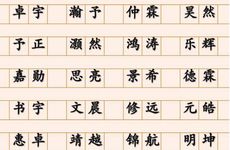 卓宇 瀚予 仲霖 昊然
予正 灏然 鸿涛 乐辉
嘉勋 思亮 景希 德霖
书宇 文晨 修远 元皓
惠卓 靖越 锦航 明坤